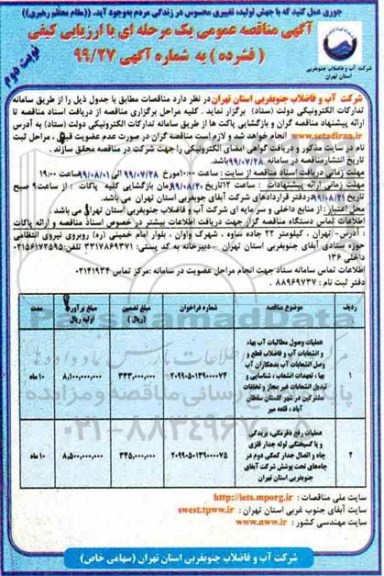 جوری عمل کنید که با جهش تولید، تغییری محسوس در زندگی مردم به‌وجود آید. ((مقام معظم رهبری))
آگهی مناقصه عمومی یک مرحله ای با ارزیابی کیفی
( فشرده ) به شماره آگهی ۹۹/۲۷
نوبت دوم
شرکت آب و فاضلاب جنوبغربی
استان تهران
شرکت آب و فاضلاب جنوبغربی استان تهران در نظر دارد مناقصات مطابق با جدول ذیل را از طریق سامانه
تدارکات الکترونیکی دولت (ستاد) برگزار نماید . کلیه مراحل برگزاری مناقصه از دریافت اسناد مناقصه تا
ارائه پیشنهاد مناقصه گران و بازگشایی پاکت ها از طریق سامانه تدارکات الکترونیکی دولت (ستاد) به آدرس
www.setadiran.ir انجام خواهد شد و لازم است مناقصه گران در صورت عدم عضویت قبلی ، مراحل ثبت
نام در سایت مذکور و دریافت گواهی امضای الکترونیکی را جهت شرکت در مناقصه محقق سازند .
تاریخ انتشار مناقصه در سامانه ۹۹/۰۷/۲۸ باشد
مهلت زمانی دریافت اسناد مناقصه از سایت : ساعت ۱۰:۰۰ مورخ ۹۹/۰۷/۲۸ الی ۹۹/۰۸/۰۱ ساعت ۱۹:۰۰
مهلت زمانی ارائه پیشنهادات : ساعت ۱۲ تاریخ ۹۹/۰۸/۲۰ زمان بازگشایی کلیه پاکات : از ساعت ۹ صبح
تاریخ ۹۹/۰۸/۲۱ دفتر قراردادهای شرکت آبفای جنوبغربی استان تهران می باشد.
محل اعتبار : از منابع داخلی و سرمایه ای شرکت آب و فاضلاب جنوبغربی استان تهران می باشد
اطلاعات تماس دستگاه مناقصه گزار جهت دریافت اطلاعات بیشتر در خصوص اسناد مناقصه و ارائه پاکات
: آدرس - تهران ، کیلومتر ۲۲ جاده ساوه ، شهرک واوان ، بلوار امام خمینی (ره) روبروی نیروی انتظامی
حوزه ستادی آبفای جنوبغربی استان تهران . دبیرخانه به کد پستی: ۳۳۱۷۸۶۹۳۷۱ تلفن: ۰۲۱۵۶۱۷۲۵۹۵
داخلی ۱۳۶
اطلاعات تماس سامانه ستاد جهت انجام مراحل عضویت در سامانه : مرکز تماس ۰۲۱۴۱۹۳۴
دفتر ثبت نام : ۸۸۹۶۹۷۳۷
ردیف موضوع مناقصه شماره فراخوان مبلغ تضمین (ریال) مبلغ برآورد اولیه ریال مدت
۱ عملیات وصول مطالبات آب بهاء و انشعابات آب و فاضلاب قطع و وصل انشعابات آب بدهکاران آب بها ، تعهدات انشعاب ، شناسایی و تبدیل انشعابات غیر مجاز و تخلفات مشترکین در شهر گلستان سلطان آباد ، قلعه میر ۲۰۹۹۰۵۰۱۳۹۰۰۰۰۷۴ ۳۳۳,۰۰۰,۰۰۰ ۸,۱۰۰,۰۰۰,۰۰۰ ۱۰ ماه
۲ عملیات رفع دفرمگی، بریدگی و یا گسیختگی لوله جدار فلزی چاه و اتصال جدار کمکی دوم در چاه‌های تحت پوشش شرکت آبفای جنوبغربی استان تهران ۲۰۹۹۰۵۰۱۳۹۰۰۰۰۷۵ ۳۴۵,۰۰۰,۰۰۰ ۸,۵۰۰,۰۰۰,۰۰۰ ۱۰ ماه
سایت ملی مناقصات : http://iets.mporg.ir
سایت آبفای جنوب غربی استان تهران : swest.tpww.ir
سایت مهندسی کشور : www.nww.ir
شرکت آب و فاضلاب جنوبغربی استان تهران (سهامی خاص)